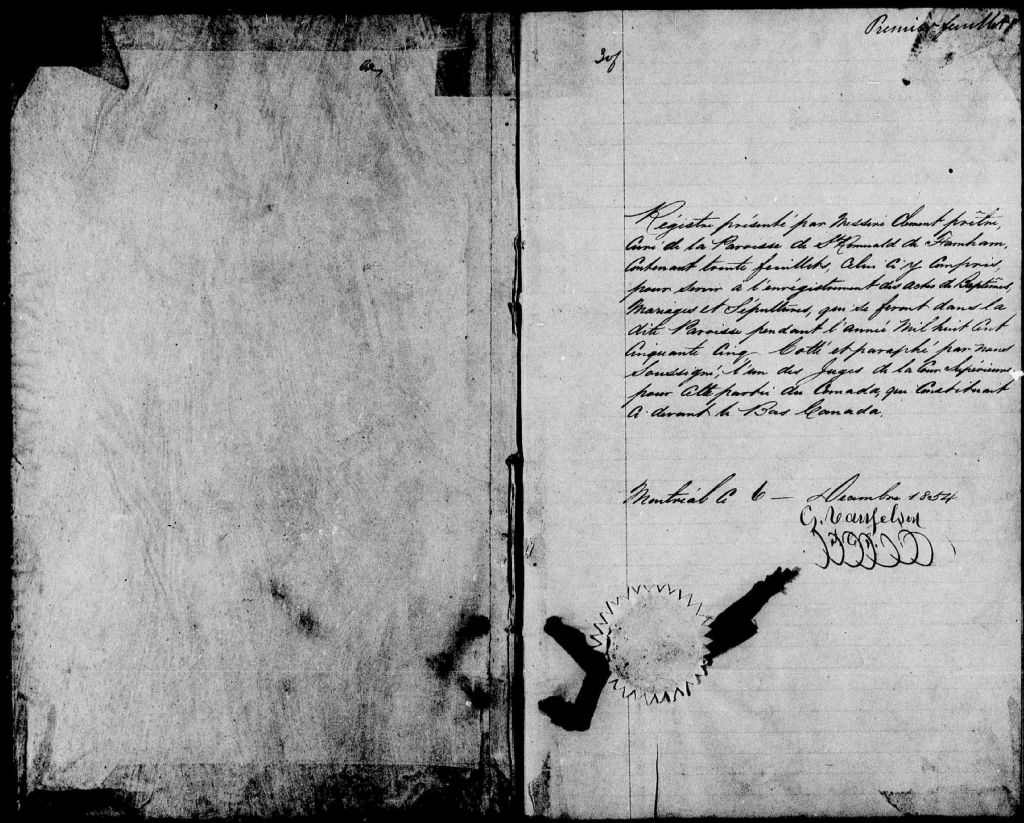 Premier feuillet
30f
Régistre présenté par Messire Clement prêtre,
Curé de la Paroisse de St Romuald de Farnham,
Contenant trente feuillets, Celui Ci y Compris,
pour Servir à l'enrégistrement des Actes de Baptêmes,
Mariages et Sépultures, qui se feront dans la
dite Paroisse pendant l'année Mil huit Cent
Cinquante Cinq Cotté et paraphé par nous
Soussigné, l'un des Juges de la Cour Supérieure
pour Cette partie du Canada, qui Constituait
Ci devant le Bas Canada.
Montréal Ce 6 — Décembre 1854